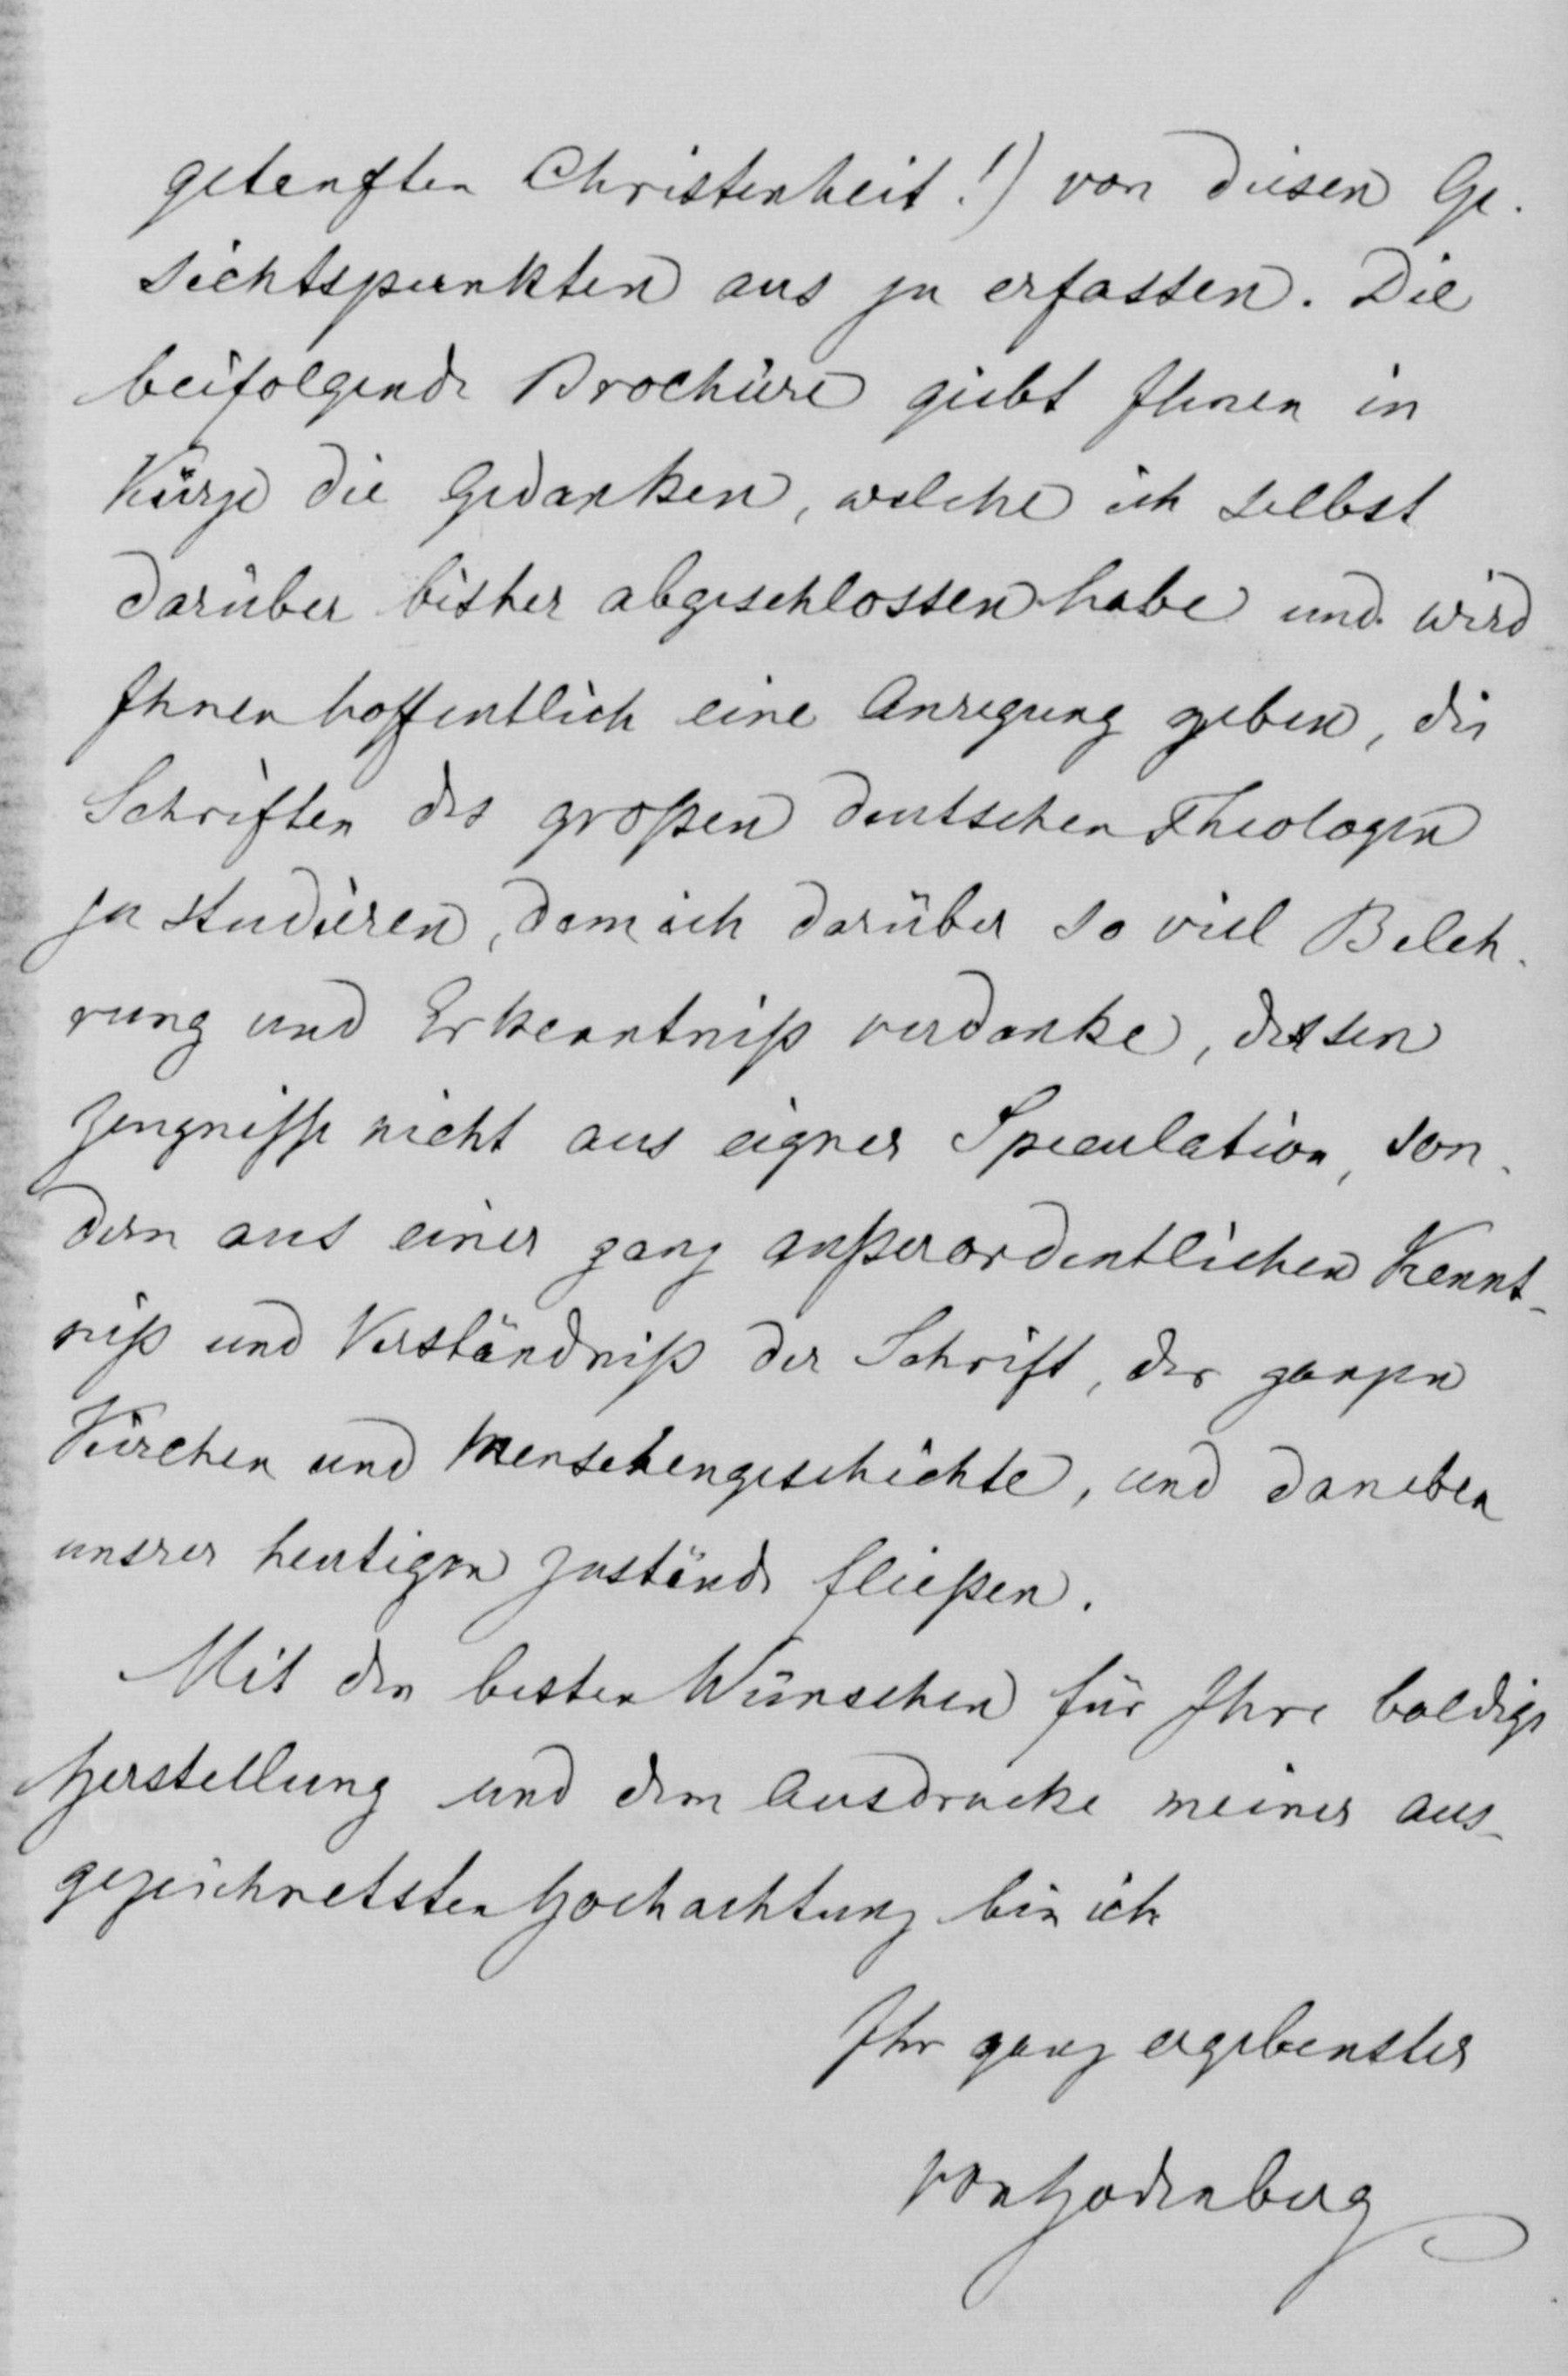 getauften Christenheit!) von diesen Ge-
sichtspunkten aus zu erfassen. Die
beifolgende Brochüre giebt Ihnen in
Kürze die Gedanken, welche ich selbst
darüber bisher abgeschlossen habe und wird
Ihnen hoffentlich eine Anregung geben, die
Schriften des großen deutschen Theologen
zu studieren, dem ich darüber so viel Beleh-
rung und Erkenntniß verdanke, dessen
Zeugnisse nicht aus eigner Speculation, son-
dern aus einer ganz außerordentlichen Kennt-
niß und Verständniß der Schrift, der ganzen
Kirchen und Menschengeschichte, und daneben
unsrer heutigen Zustände fließen.
Mit den besten Wünschen für Ihre baldige
Herstellung und dem Ausdrucke meiner aus-
gezeichnetsten Hochachtung bin ich
Ihr ganz ergebenster
von Hodenberg